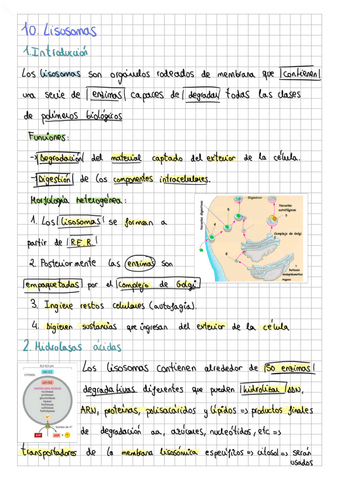 10. Lisosomas
1. Introducción
Los lisosomas son orgánulos rodeados de membrana que contienen
una serie de enzimas capaces de degradar todas las clases
de polímeros biológicos
Funciones:
→ Degradación del material captado del exterior de la célula.
→ Digestión de los componentes intracelulares.
Morfología heterogénea:
1. Los lisosomas se forman a
partir de R.E.R.
2. Posteriormente las enzimas son
empaquetadas por el Complejo de Golgi
3. Ingiere restos celulares (autofagia).
4. Digieren sustancias que ingresan del exterior de la célula
Complejo de Golgi
2. Hidrolasas ácidas
Los lisosomas contienen alrededor de 50 enzimas
degradativas diferentes que pueden hidrolizar ADN,
ARN, proteínas, polisacáridos y lípidos ⇒ productos finales
de degradación aa, azúcares, nucleótidos, etc ⇒
transportadores de la membrana lisosómica específicos ⇒ citosol ⇒ serán
usados